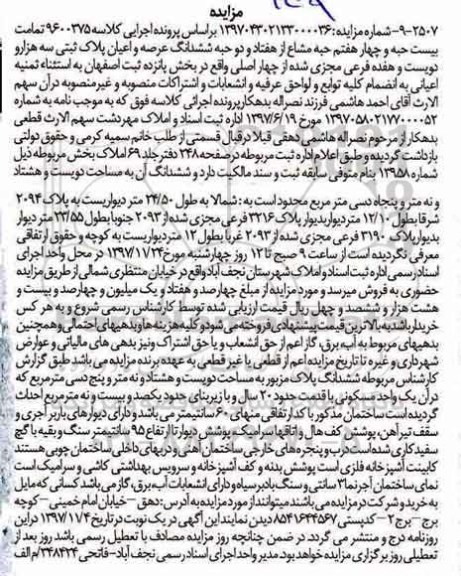 مزایده
۹-۲۵۰۷-شماره مزایده: ۱۳۹۷۰۴۳۰۲۱۳۳۰۰۰۰۳۶ براساس پرونده اجرایی کلاسه ۹۶۰۰۳۷۵ تمامت
بیست حبه و چهار هفتم حبه مشاع از هفتاد و دو حبه ششدانگ عرصه و اعیان پلاک ثبتی سه هزارو
دویست و هفده فرعی مجزی شده از چهار اصلی واقع در بخش پانزده ثبت اصفهان به استثناء ثمنیه
اعیانی به انضمام کلیه توابع و لواحق عرفیه و انشعابات و اشتراکات منصوبه و غیرمنصوبه درآن سهم
الارث آقای احمد هاشمی فرزند نصراله بدهکار پرونده اجرائی کلاسه فوق که به موجب نامه به شماره
۱۳۹۷۰۵۸۰۲۱۷۷۰۰۰۰۵۲ مورخ ۱۳۹۷/۶/۱۹ اداره ثبت اسناد و املاک مهردشت سهم الارث قطعی
بدهکار از مرحوم نصراله هاشمی دهقی قبلا درقبال قسمتی از طلب خانم سمیه کرمی و حقوق دولتی
بازداشت گردیده و طبق اعلام اداره ثبت مربوطه درصفحه ۲۴۸ دفتر جلد ۶۹ املاک بخش مربوطه ذیل
شماره ۱۳۹۵۸ بنام متوفی سابقه ثبت و سند مالکیت دارد و ششدانگ آن به مساحت دویست و هشتاد
و نه متر و پنجاه دسی متر مربع محدود است به: شمالا به طول ۲۴/۵۰ متر دیواریست به پلاک ۲۰۹۴
شرقا بطول ۱۲/۱۰ متر دیواربدیوار پلاک ۳۲۱۶ فرعی مجزی شده از ۲۰۹۳ جنوبا بطول ۲۳/۵۵ متر دیوار
بدیوارپلاک ۳۱۹۰ فرعی مجزی شده از ۲۰۹۳ غربا بطول ۱۲ متر دیواریست به کوچه و حقوق ارتفاقی
معرفی نگردیده است از ساعت ۹ صبح تا ۱۲ روز چهارشنبه مورخ ۱۳۹۷/۱۱/۲۴ در محل واحد اجرای
اسناد رسمی اداره ثبت اسناد و املاک شهرستان نجف آباد واقع در خیابان منتظری شمالی از طریق مزایده
حضوری به فروش میرسد و مورد مزایده از مبلغ چهارصد و هفتاد و یک میلیون و چهارصد و بیست و
هشت هزار و ششصد و چهل ریال قیمت ارزیابی شده توسط کارشناس رسمی شروع و به هر کس
خریدارباشد به بالاترین قیمت پیشنهادی فروخته می شود و کلیه هزینه ها و بدهیهای احتمالی و همچنین
بدهیهای مربوط به آب، برق، گاز اعم از حق انشعاب و یا حق اشتراک و نیز بدهی های مالیاتی و عوارض
شهرداری و غیره تا تاریخ مزایده اعم از قطعی یا غیر قطعی به عهده برنده مزایده می باشد طبق گزارش
کارشناس مربوطه ششدانگ پلاک مزبور به مساحت دویست و هشتاد و نه متر و پنج دسی مترمربع که
درآن یک واحد مسکونی با قدمت حدود ۲۰ سال و با زیربنای حدود یکصد و بیست و نه مترمربع احداث
گردیده است ساختمان مذکور با کدارتفاقی منهای ۶۰ سانتیمتر می باشد و دارای دیوارهای باربر آجری و
سقف تیرآهن، پوشش کف هال و اتاقها سرامیک، پوشش دیوار تا ارتفاع ۹۵ سانتیمتر سنگ و بقیه با گچ
سفید کاری شده است درب و پنجره های خارجی ساختمان آهنی و دربهای داخلی ساختمان چوبی هستند
کابینت آشپزخانه فلزی است پوشش بدنه و کف آشپزخانه و سرویس بهداشتی کاشی و سرامیک است
نمای ساختمان آجرنما ۳ سانتی و سنگ بادبرسیاه و دارای انشعابات آب، برق، گاز می باشد کسانی که مایل
به خرید و شرکت درمزایده می باشند میتوانند از مورد مزایده به آدرس: دهق - خیابان امام خمینی - کوچه
برج - برج ۲ - کدپستی ۸۵۴۱۶۴۴۵۶۷ دیدن نمایند این آگهی در یک نوبت در تاریخ ۱۳۹۷/۱۱/۴ دراین
روزنامه درج و منتشر می گردد در ضمن چنانچه روز مزایده مصادف با تعطیل رسمی باشد روز بعد از
تعطیلی روز برگزاری مزایده خواهد بود مدیر واحد اجرای اسناد رسمی نجف آباد - فاتحی ۳۴۸۴۲۴/م الف